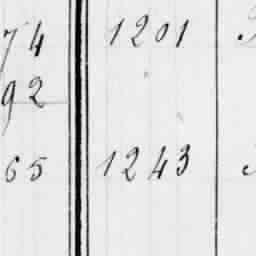 74 1201
92
65 1243